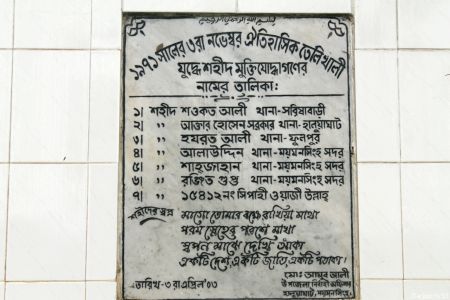 ১৯৭১ সালের ৩রা নভেম্বর ঐতিহাসিক তেলিখালী
যুদ্ধে শহীদ মুক্তিযোদ্ধাগণের
নামের তালিকা:
১| শহীদ শওকত আলী থানা-সরিষাবাড়ী
২| ,, আক্তার হোসেন সরকার থানা-হালুয়াঘাট
৩| ,, হযরত আলী থানা-ফুলপুর
৪| ,, আলাউদ্দিন থানা-ময়মনসিংহ সদর
৫| ,, শাহজাহান থানা-ময়মনসিংহ সদর
৬| ,, রঞ্জিত গুপ্ত থানা-ময়মনসিংহ সদর
৭| ,, ১৫৪১২নং সিপাহী ওয়াজী উল্লাহ্
শহীদের স্বপ্ন
মাগো তোমার বক্ষে রাখিয়া মাথা
পরম স্নেহের পরশে মাখা
স্বপন মাঝে দেখি আঁকা
একটি দেশ একটি জাতি একটি পতাকা।
তারিখ-৩রা এপ্রিল ০৩
মোঃ আলী
উপজেলা নির্বাহী অফিসার
হালুয়াঘাট, ময়মনসিংহ।